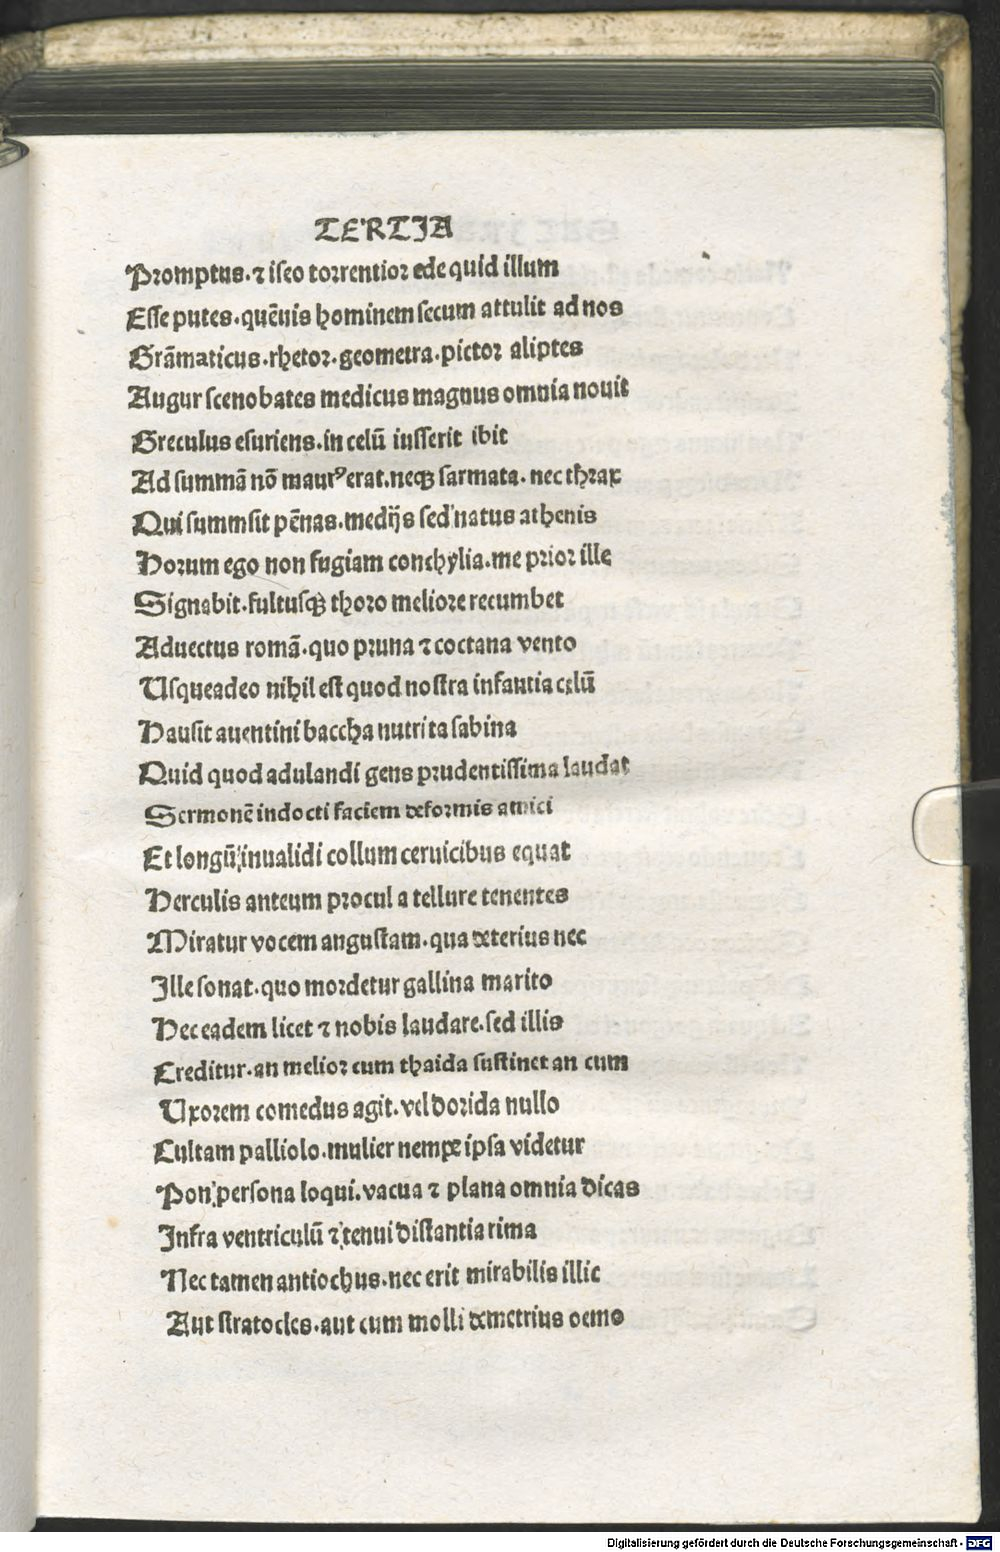 TERTIA
Promptus. ⁊ iſeo torrentior ede quid illum
Eſſe putes. quēuis hominem ſecum attulit ad nos
Grāmaticus. rhetor. geometra. pictor aliptes
Augur ſcenobates medicus magnus omnia nouit
Greculus eſuriens. in celū iuſſerit ibit
Ad ſummā nō maurꝰ erat. neqꝫ ſarmata. nec thrax
Qui ſummſit pēnas. medijs ſed natus athenis
Horum ego non fugiam conchylia. me prior ille
Signabit. fultuſqꝫ thoro meliore recumbet
Aduectus romā. quo pruna ⁊ coctana vento
Uſqueadeo nihil eſt quod noſtra infantia celū
Hauſit auentini baccha nutrita ſabina
Quid quod adulandi gens prudentiſſima laudat
Sermonē indocti faciem deformis amici
Et longū inualidi collum ceruicibus equat
Herculis anteum procul a tellure tenentes
Miratur vocem anguſtam. qua deterius nec
Ille ſonat. quo mordetur gallina marito
Hec eadem licet ⁊ nobis laudare. ſed illis
Creditur. an melior cum thaida ſuſtinet an cum
Uxorem comedus agit. vel dorida nullo
Cultam palliolo. mulier nempe ipſa videtur
Non perſona loqui. vacua ⁊ plana omnia dicas
Infra ventriculū ⁊ tenui diſtantia rima
Nec tamen antiochus. nec erit mirabilis illic
Aut ſtratocles. aut cum molli demetrius oemo
Digitalisierung gefördert durch die Deutsche Forschungsgemeinschaft - DFG